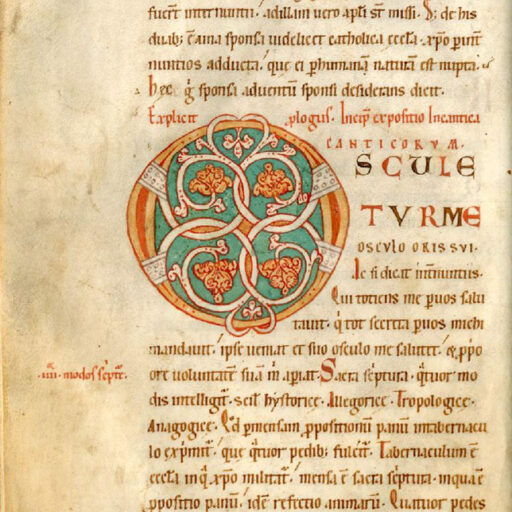 fuer̄t internuntii. ad illam vero apłi st̄ missi. S; de his
duab; ē una sponsa videlicet catholica eccła. xp̄o
nuntios adducta, que ei p humanā naturā est nupta.
hec ḡ sponsa adventū sponsi desiderans dicit.
Explicit plogus. Incip̄ expositio in cantica
CANTICORVM.
OSCULE
TVR ME
OSCVLO ORIS SVI.
Ac si dicat int̄nuntiis.
Qui totiens me p uos salu
tauit. q̄ tot secreta p uos michi
mandauit, ipse ueniat et suo osculo me salutet, &
ore voluntatē suā m̄ apiat. Sacra sc̄ptura .q̄tuor mo
.iiii. modos sc̄pt̄e.
dis intelligit̄. scił hystorice. Allegorice. Tropologice.
Anagogice. Qd̄ p mensam ppositionum panū in tabernacu
lo exp̄mit̄, que q̄tuor pedib; fulcit̄. Tabernaculum ē
eccła in q̄ xp̄o militat̄. mensa ē sacra sc̄ptura. in qua ē
ppositio panū, idē refectio animarū. Quatuor pedes